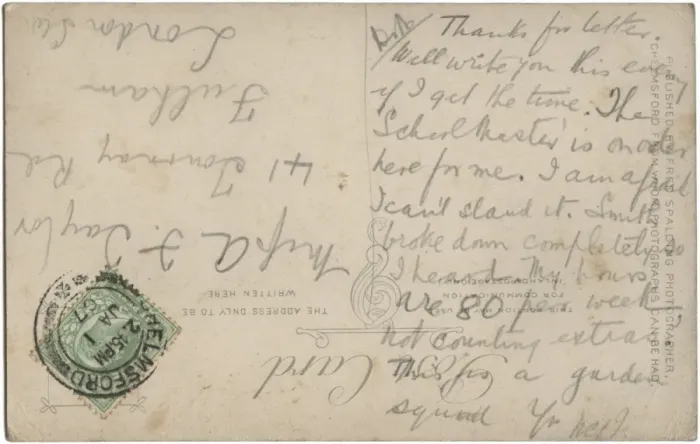 Thanks for letter.
Will write you this eveng
if I get the time. The
'School Master' is on order
here for me. I am afraid
I can't stand it. Smith
broke down completely so
I heard. My hours
are 80 per week
not counting extras
This is a garden
squad Yr
Miss A. J. Taylor
41 Tournay Rd
Fulham
London SW
Post Card
THE ADDRESS ONLY TO BE
WRITTEN HERE
THIS PORTION MAY BE USED
FOR COMMUNICATION
INLAND POSTAGE ONLY
PUBLISHED BY FRED SPALDING, PHOTOGRAPHER,
CHELMSFORD, FROM WHOM PHOTOGRAPHS CAN BE HAD.
CHELMSFORD
2.15PM
JA 1
07